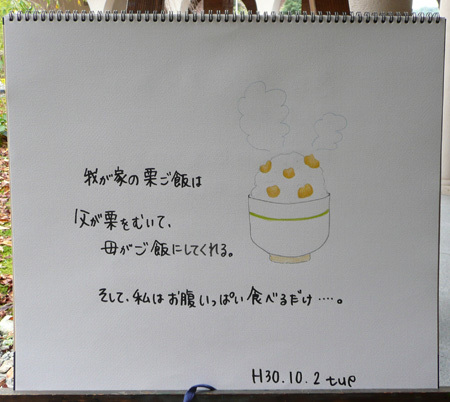 我が家の栗ご飯は
父が栗をむいて、
母がご飯にしてくれる。
そして、私はお腹いっぱい食べるだけ‥‥。
H30.10.2 tue